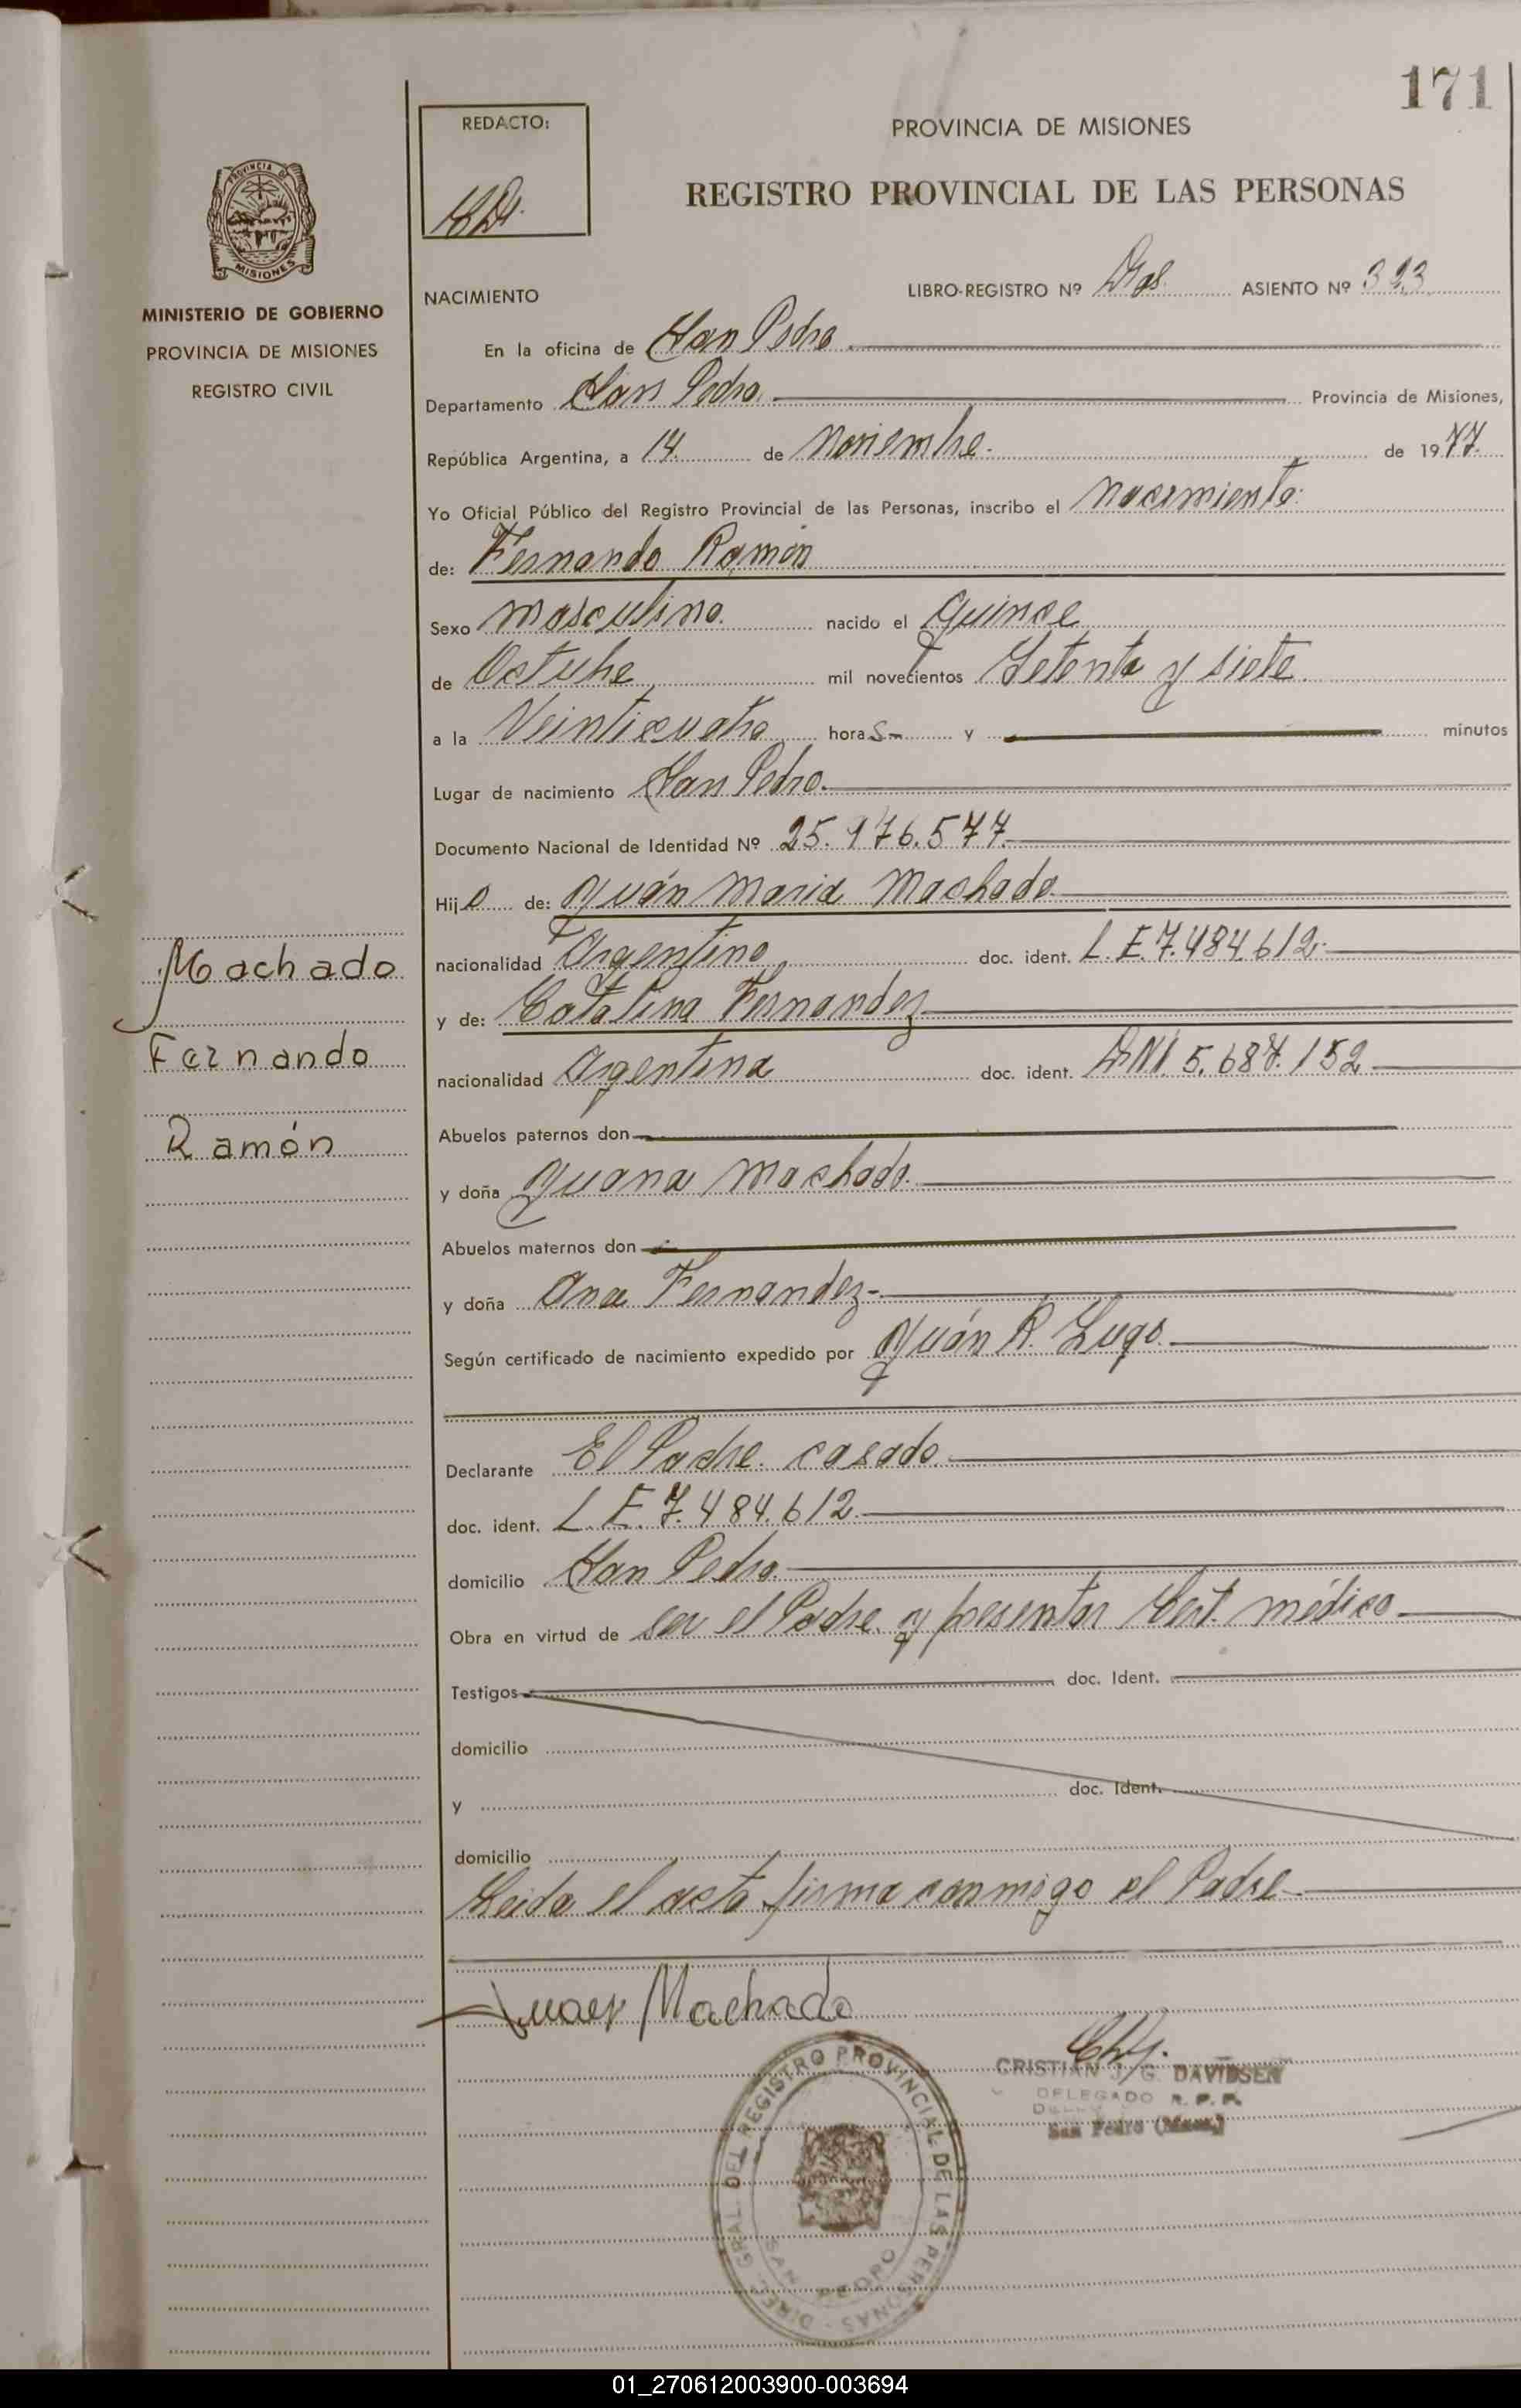 171
REDACTO:
PROVINCIA DE MISIONES
REGISTRO PROVINCIAL DE LAS PERSONAS
PROVINCIA DE
MISIONES
MINISTERIO DE GOBIERNO
PROVINCIA DE MISIONES
REGISTRO CIVIL
NACIMIENTO
LIBRO-REGISTRO Nº Dos. ASIENTO Nº 323
En la oficina de San Pedro
Departamento San Pedro. Provincia de Misiones,
República Argentina, a 14. de Noviembre. de 1977.
Yo Oficial Público del Registro Provincial de las Personas, inscribo el nacimiento:
de: Fernando Ramón
Sexo masculino. nacido el quince
de Octubre mil novecientos Setenta y siete.
a la Veinticuatro horas- y minutos
Lugar de nacimiento San Pedro.
Documento Nacional de Identidad Nº 25.976.577.
Hijo de: Juán Maria Machado.
nacionalidad Argentino doc. ident. L.E.7.484.612.
y de: Catalina Fernandez
nacionalidad Argentina doc. ident. DNI. 5.687.152
Abuelos paternos don
y doña Juana Machado.
Abuelos maternos don
y doña Ana Fernandez-
Según certificado de nacimiento expedido por Juán R. Lugo
Declarante El Padre. casado.
doc. ident. L.E.7.484.612.
domicilio San Pedro.
Obra en virtud de ser el Padre. y presentar Cert. médico
Testigos doc. Ident.
domicilio
y doc. Ident.
domicilio
Leida el acta firma conmigo el Padre
Machado
Fernando
Ramón
Juan Machado
CRISTIAN J. G. DAVIDSEN
DELEGADO R. P. P.
San Pedro (Mnes.)
DIREC. GRAL. DEL REGISTRO PROVINCIAL DE LAS PERSONAS
SAN PEDRO
01_270612003900-003694